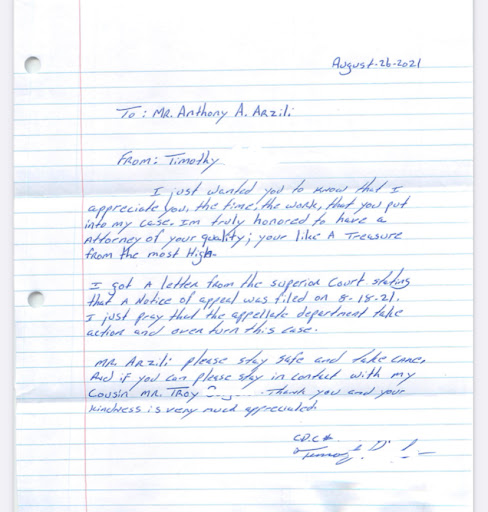 August-26-2021
To: MR. Anthony A. Arzili
From: Timothy
I just wanted you to know that I
appreciate you, the time, the work, that you put
into my case. Im truly honored to have a
Attorney of your quality; your like A Treasure
from the most High.
I got A letter from the superior Court stating
that A Notice of appeal was filed on 8-18-21.
I just pray that the appellate department take
action and overturn this case.
MR. Arzili please stay safe and take care,
And if you can please stay in contact with my
Cousin MR. Troy Thank you and your
kindness is very much appreciated.
CDC#